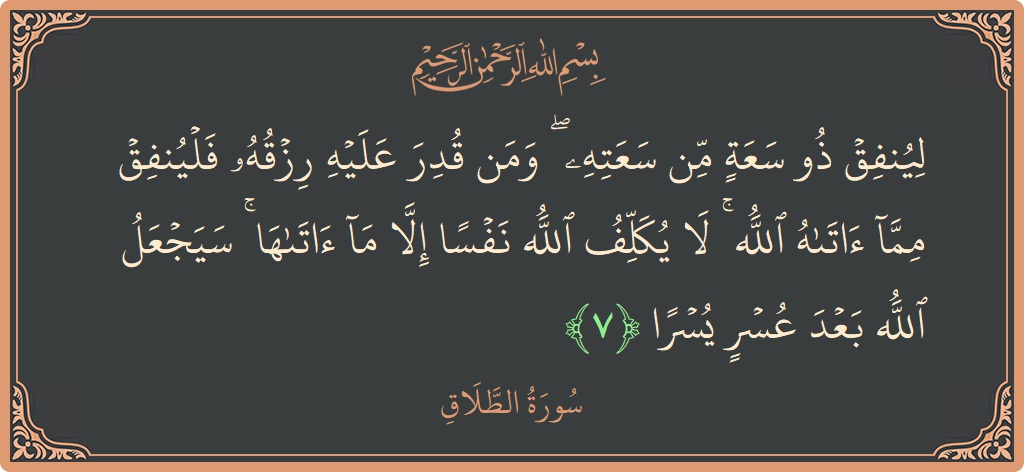 بِسْمِ اللهِ الرَّحْمٰنِ الرَّحِيْمِ
لِيُنفِقۡ ذُو سَعَةٖ مِّن سَعَتِهِۦۖ وَمَن قُدِرَ عَلَيۡهِ رِزۡقُهُۥ فَلۡيُنفِقۡ
مِمَّآ ءَاتَىٰهُ ٱللَّهُۚ لَا يُكَلِّفُ ٱللَّهُ نَفۡسًا إِلَّا مَآ ءَاتَىٰهَاۚ سَيَجۡعَلُ
ٱللَّهُ بَعۡدَ عُسۡرٖ يُسۡرٗا ﴿٧﴾
سُورَةُ الطَّلَاقِ